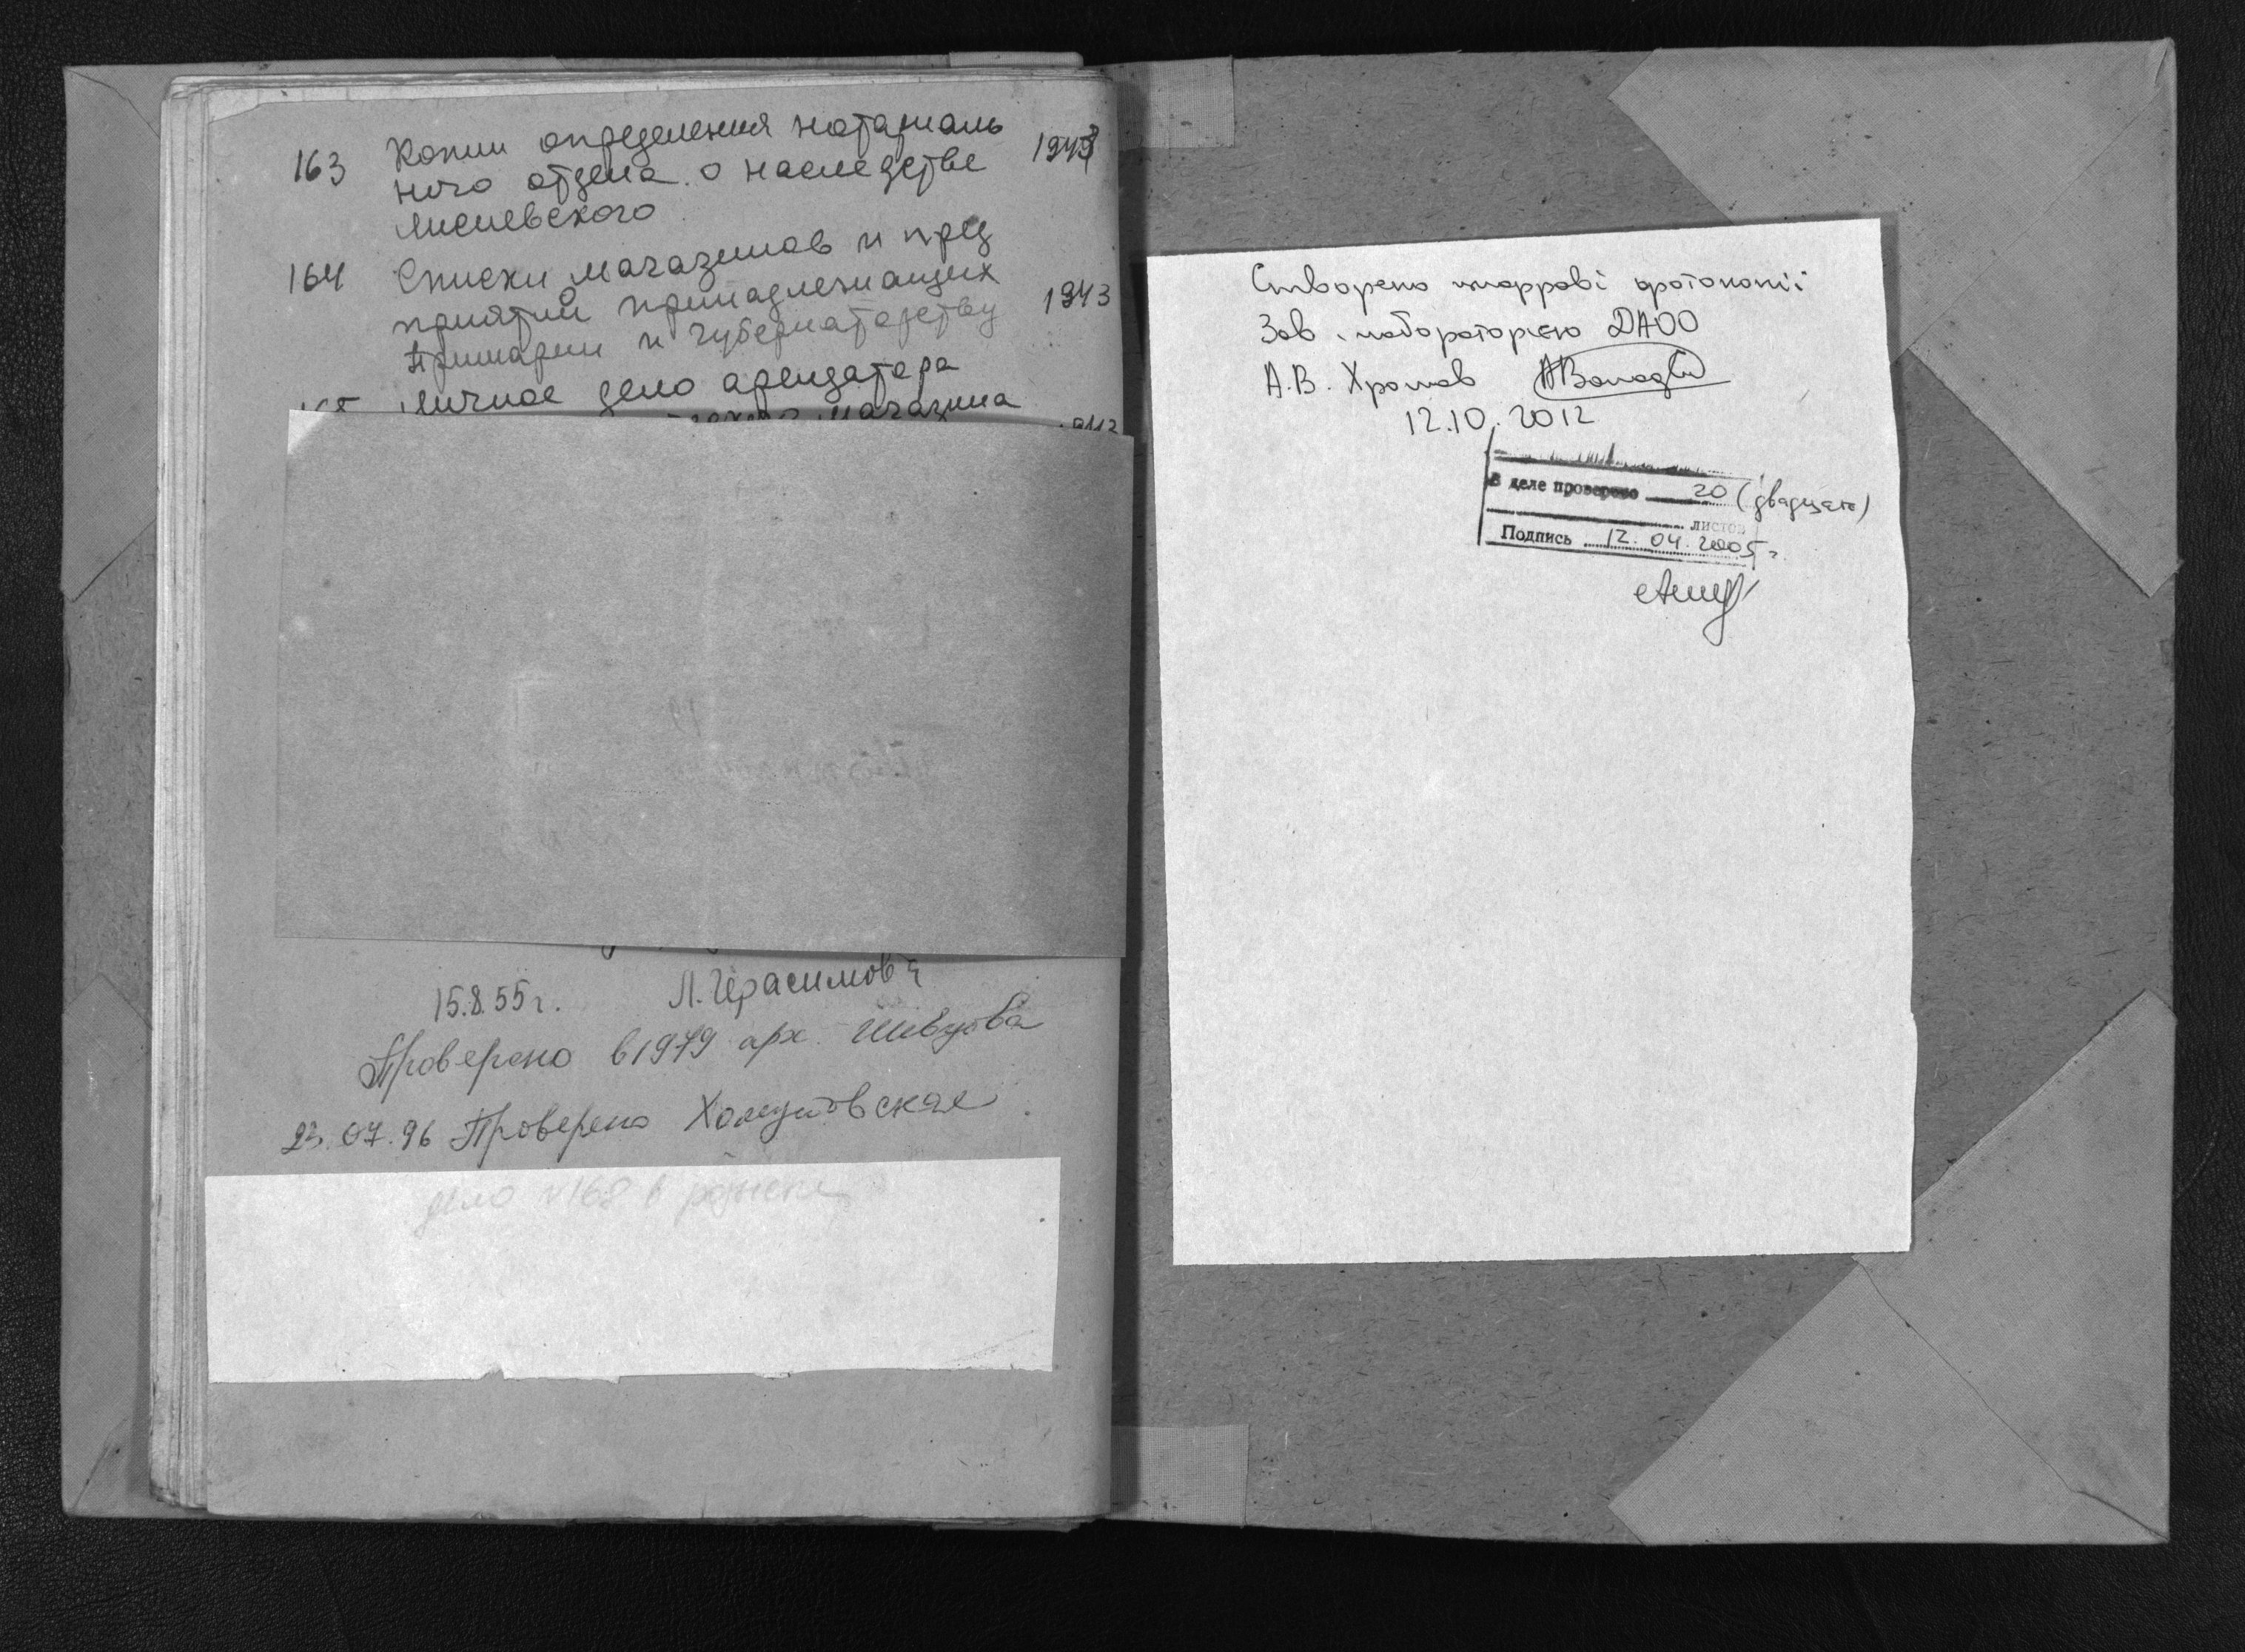 163 Копии определения нотариаль 1943
ного отдела о наследстве
Лисиевского
164 Списки магазинов и пред
приятий принадлежащих 1943
Примарии и губернаторству
Личное дело арендатора
магазина
15.8.55 г. Л. Герасимова
Проверено в 1979 арх. Шевцова
23.07.96 Проверено Хомутовская
дело N 168 в
Створено цифрові фотокопії
Зав. лабораторією ДАОО
А.В. Хромов
12.10.2012
В деле проверено 20 (двадцать)
листов
Подпись 12.04.2005 г.